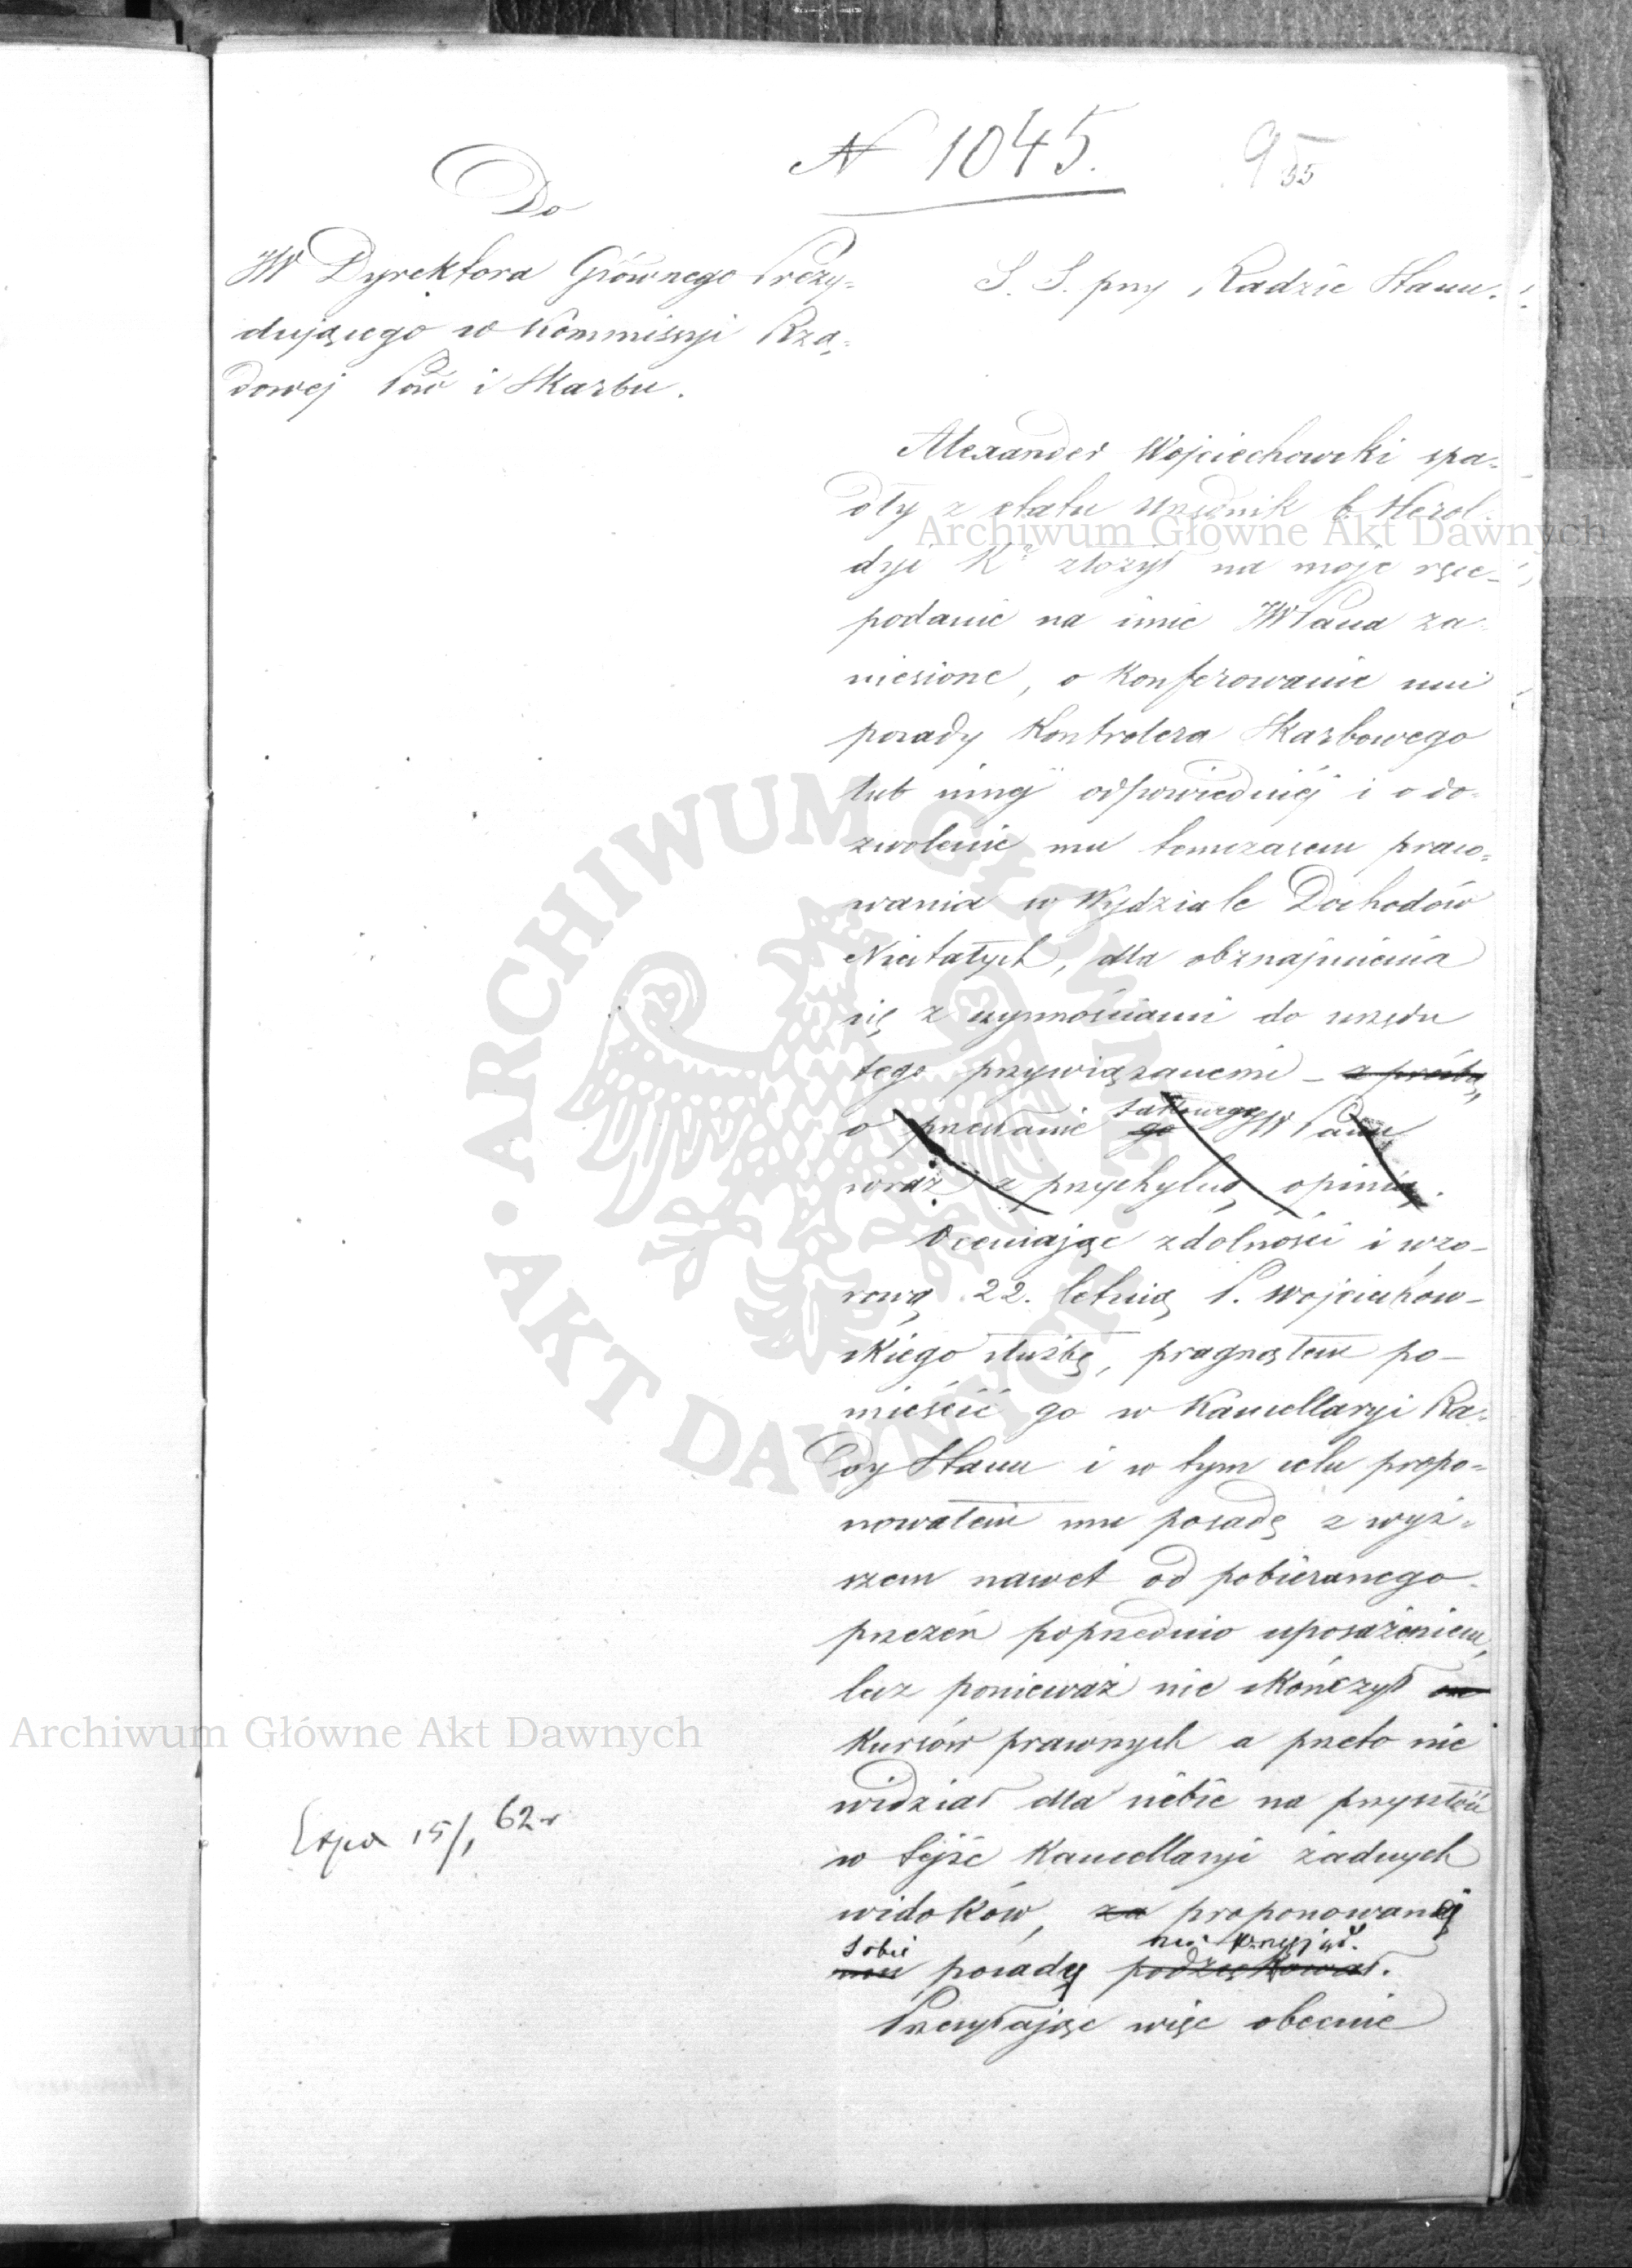 N 1045.
955
Do
JW Dyrektora Głównego Prezy=
dującego w Kommissyi Rzą=
dowej Pów i Skarbu.
S. S. przy Radzie Stanu.
Alexander Wojciechowski spa-
dły z etatu Urzędnik b. Herol-
dyi Ka złożył na moje ręce
podanie na imie JWPana za-
niesione, o konferowanie mu
posady Kontrolera Skarbowego
lub innej odpowiedniéj i o do-
zwolenie mu tymczasem praco=
wania w Wydziale Dochodów
Niestałych, dla obznajmienia
się z czynnościami do urzędu
tego przywiązanemi – z prośbą
o przesłanie go takowego JW Panu
wraz z przychylną opinią.
Oceniając zdolności i wzo-
rową 22. letnią P. Wojciechow-
skiego służbę, pragnąłem po-
mieścić go w Kancellaryi Ra-
dy Stanu i w tym celu propo-
nowałem mu posadę z wyż-
szem nawet od pobieranego
przezeń poprzednio uposażeniem,
lecz ponieważ nie skończył
Kursów prawnych a przeto nie
widział dla siebie na przyszłość
w tejże Kancellaryi żadnych
widoków, za proponowanéj
sobie
nie przyjął.
posady podziękował.
Przesyłając więc obecnie
Exp. 15/1 62 r
Archiwum Główne Akt Dawnych
Archiwum Główne Akt Dawnych
ARCHIWUM GŁÓWNE AKT DAWNYCH